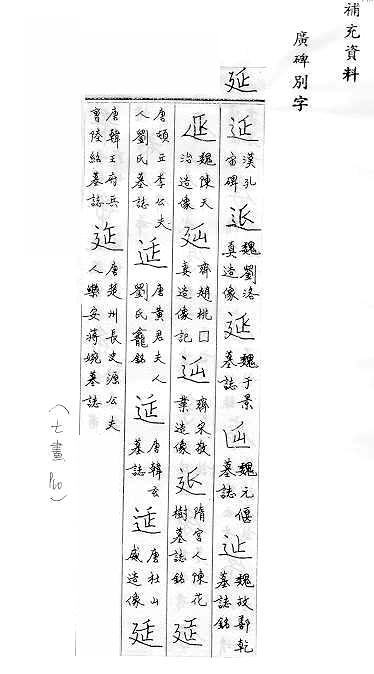 補充資料
廣碑別字
延
延 漢孔宙碑 延 魏劉洛真造像 延 魏于景墓誌 延 魏元偃墓誌 延 魏故鄯乾墓誌銘
延 魏陳天造像 延 齊趙桃□妻造像記 延 齊宋敬業造像 延 隋宮人陳花樹墓誌銘 延
唐頓丘李公夫人劉氏墓誌 延 唐黃君夫人劉氏龕銘 延 唐韓玄墓誌 延 唐杜山威造像 延
唐韓王府兵曹陸紹墓誌 延 唐楚州長史源公夫人樂安蔣婉墓誌
(七畫)